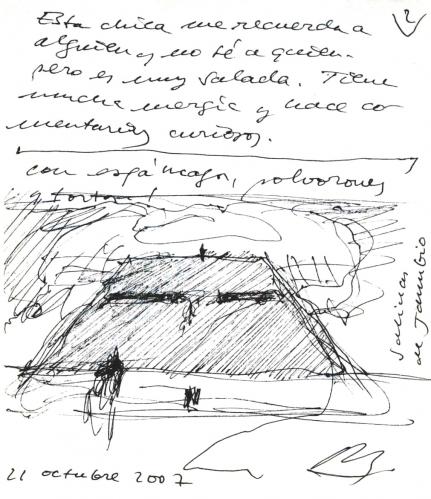 2
Esta chica me recuerda a
alguien y no sé a quien
pero es muy salada. Tiene
mucha energía y hace co
mentarios curiosos.
con espárragos, polvorones
y tortas!
Salinas
de Janubio
21 octubre 2007